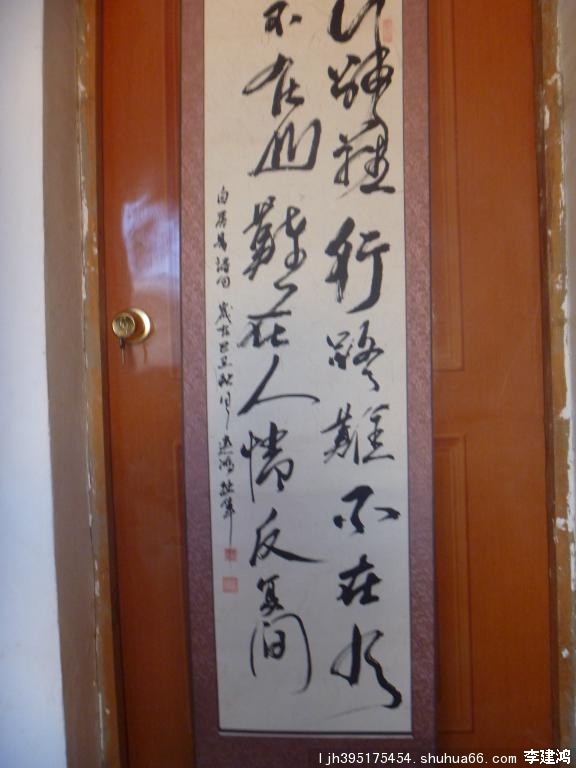 行路難行路難不在水
不在山難在人情反复间
白居易詩句 歲在己丑秋月 建鴻
ljh395175454.shuhua66.com 李建鸿